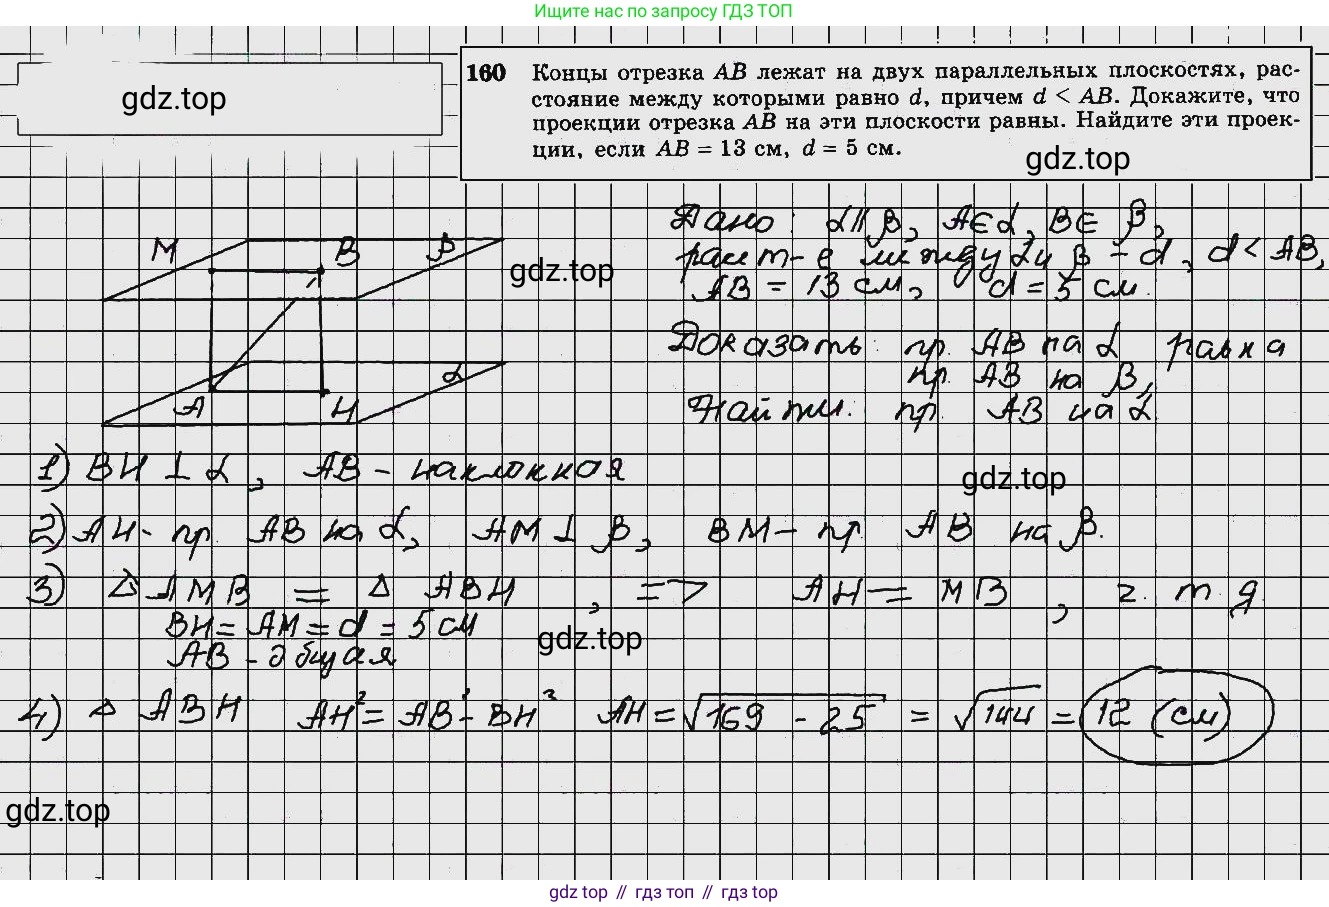 Ищите нас по запросу ГДЗ ТОП
gdz.top
160 Концы отрезка AB лежат на двух параллельных плоскостях, рас-
стояние между которыми равно d, причем d < AB. Докажите, что
проекции отрезка AB на эти плоскости равны. Найдите эти проек-
ции, если AB = 13 см, d = 5 см.
gdz.top
Дано: α∥β, A∈α, B∈β,
расст-е между α и β - d, d < AB,
AB = 13 см, d = 5 см.
M B β
gdz.top
Доказать: пр. AB на α равна
пр. AB на β,
α
A H
Найти: пр. AB на α
1) BH ⊥ α, AB - наклонная
gdz.top
2) AH - пр. AB на α, AM ⊥ β, BM - пр. AB на β.
3) △ AMB = △ ABH, => AH = MB, г. т. д.
BH = AM = d = 5 см
gdz.top
AB - общая
4) △ ABH AH² = AB² - BH² AH = √169 - 25 = √144 = 12 (см)
gdz.top
gdz top // гдз топ // gdz top